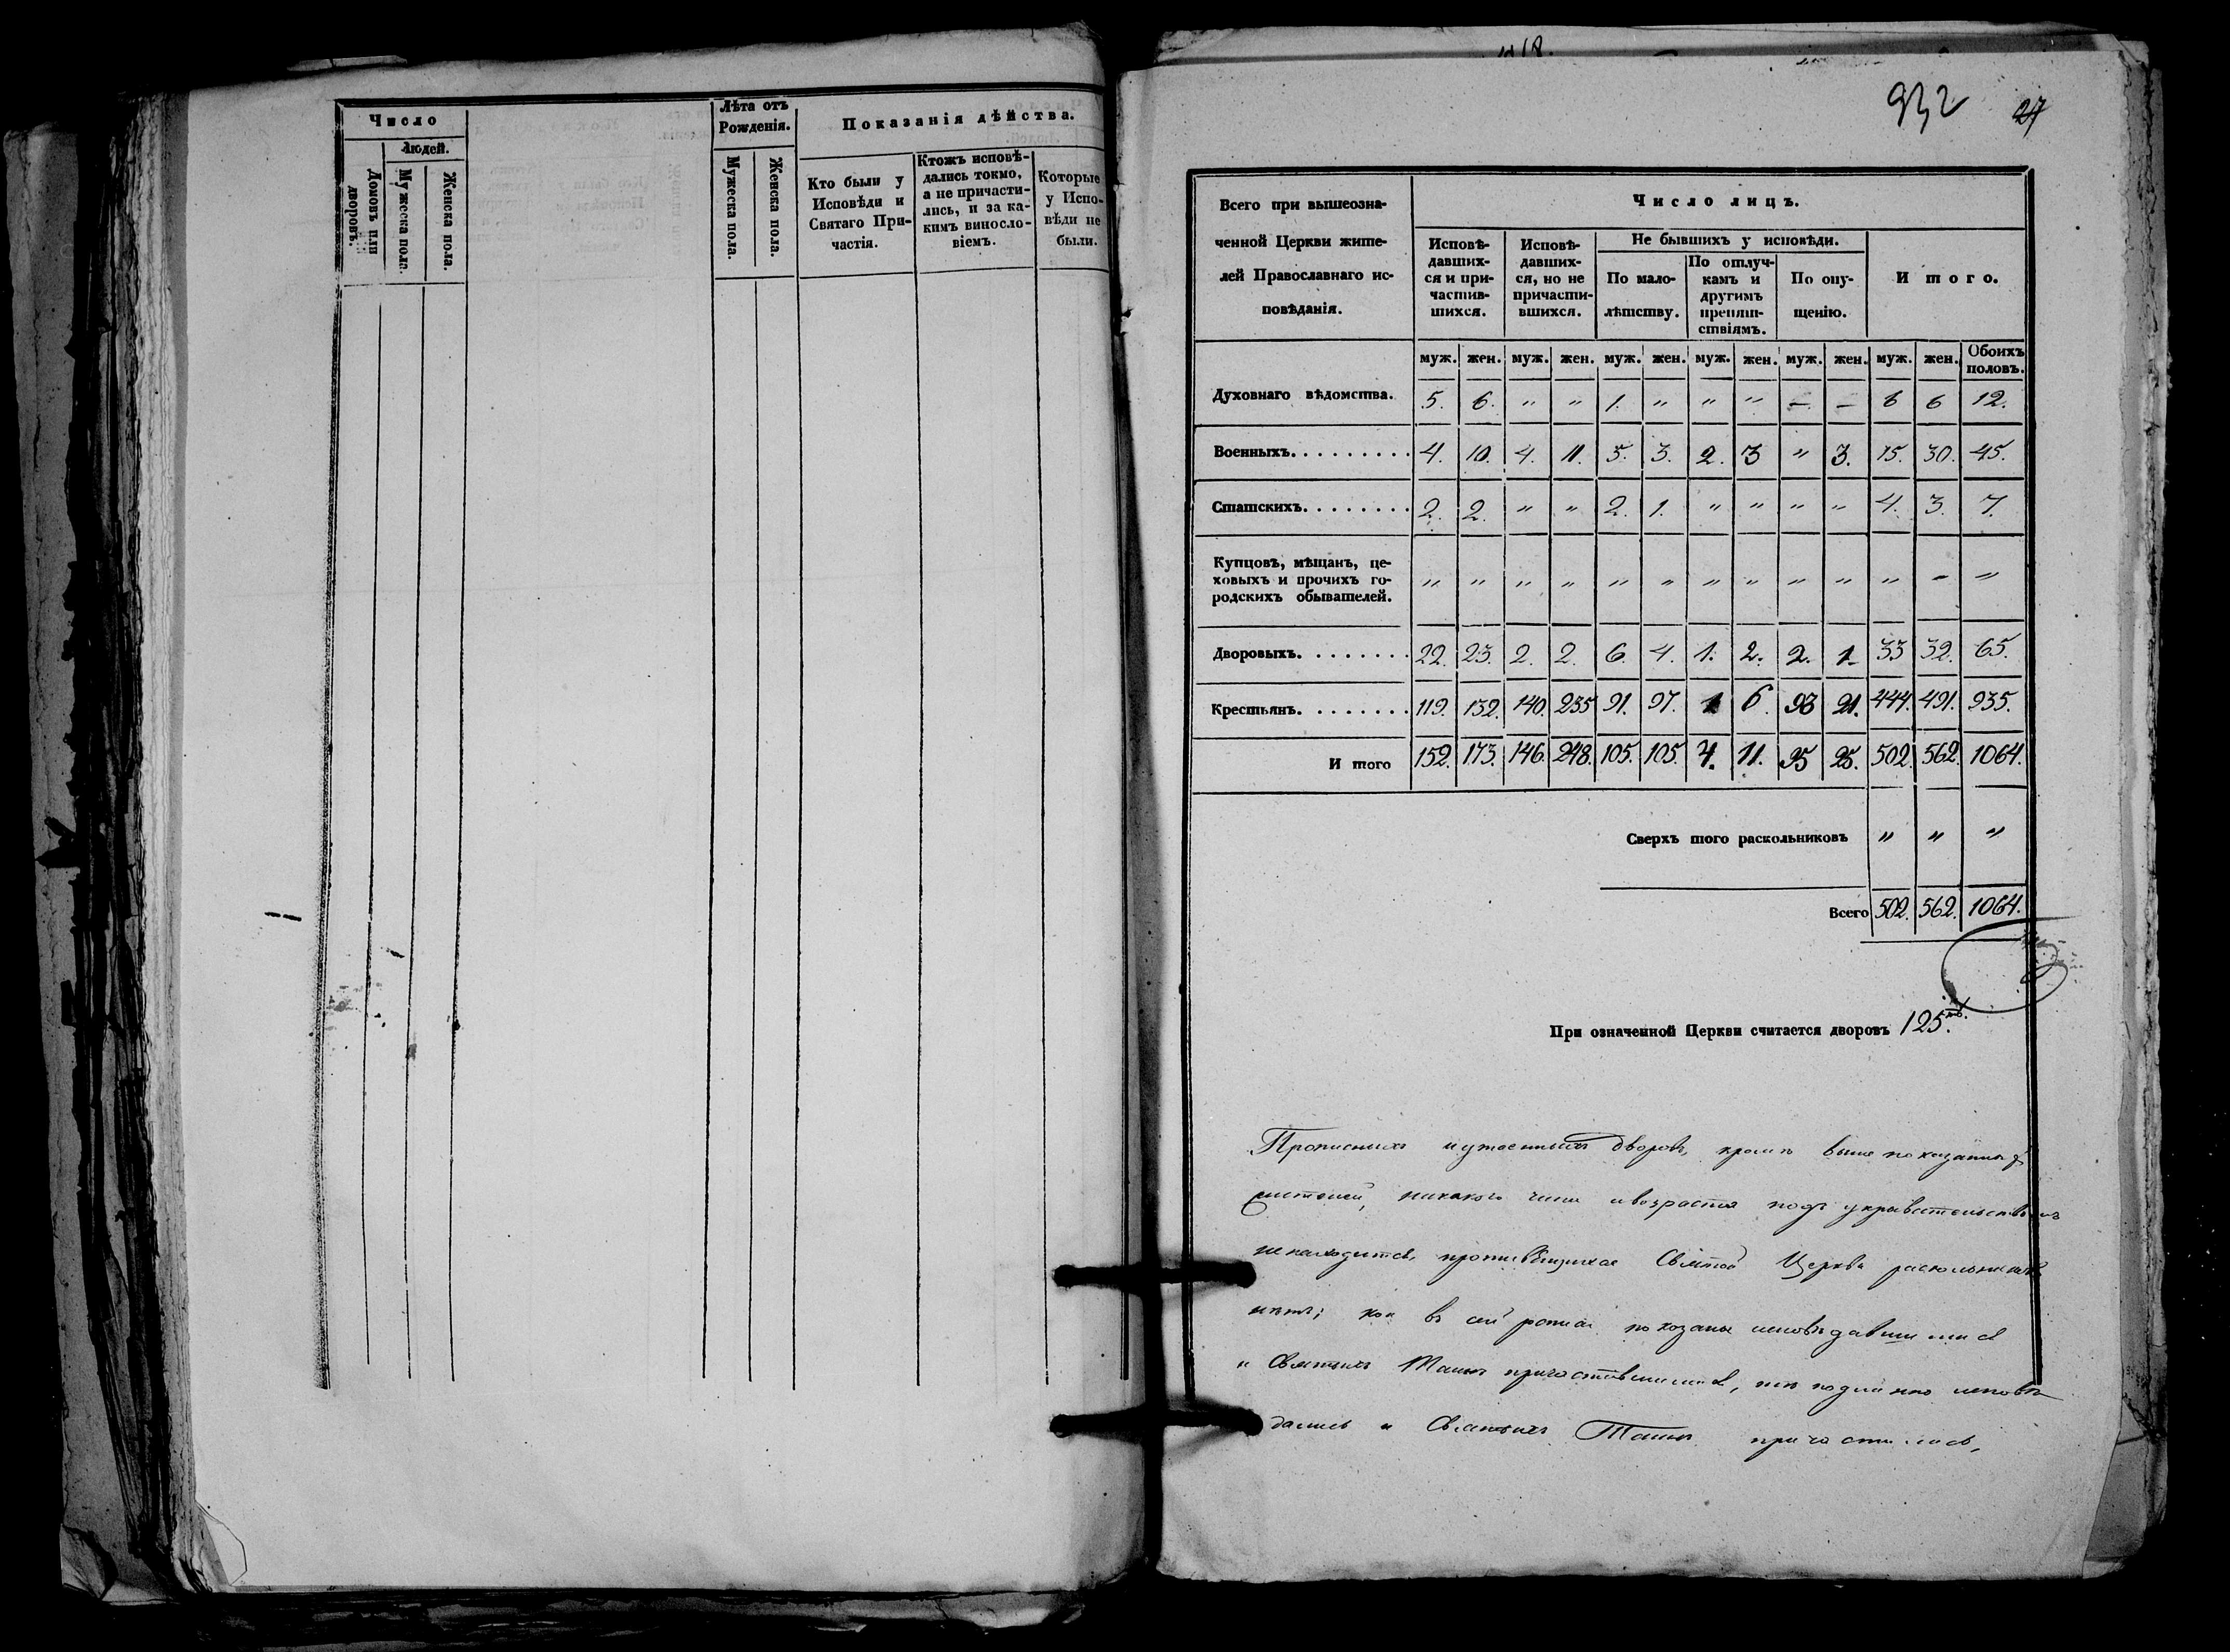 Число
Людей.
Домовъ или дворовъ.
Мужеска пола.
Женска пола.
Лѣта отъ
Рожденія.
Мужеска пола.
Женска пола.
Показанія дѣйства.
Кто были у
Исповѣди и
Святаго При-
частія.
Ктожъ исповѣ-
дались токмо,
а не причасти-
лись, и за ка-
кимъ винosло-
віемъ.
Которые
у Испо-
вѣди не
были.
932 27
Всего при вышеозна-
ченной Церкви жите-
лей Православнаго ис-
повѣданія.
Число лицъ.
Исповѣ-
давших-
ся и при-
частив-
шихся.
Исповѣ-
давших-
ся, но не
причасти-
вшихся.
Не бывшихъ у исповѣди.
По мало-
лѣтству.
По отлуч-
камъ и
другимъ
препят-
ствіямъ.
По опу-
щенію.
Итого.
муж. жен. муж. жен. муж. жен. муж. жен. муж. жен. муж. жен. Обоихъ половъ.
Духовнаго вѣдомства. 5. 6. " " 1. " " " – – 6 6 12.
Военныхъ. . . . . . . . . 4. 10. 4. 11. 5. 3. 2. 3 " 3. 15. 30. 45.
Статскихъ. . . . . . . . 2. 2. " " 2. 1. " " " " 4. 3. 7.
Купцовъ, мѣщанъ, це-
ховыхъ и прочихъ го-
родскихъ обывателей. " " " " " " " " " " " " "
Дворовыхъ. . . . . . . . 22. 23. 2. 2. 6. 4. 1. 2. 2. 1. 33 32. 65.
Крестьянъ. . . . . . . . 119. 132. 140. 235 91. 97. 1 6. 93 21. 444. 491. 935.
И того 152. 173. 146. 248. 105. 105. 4. 11. 95 25. 502. 562. 1064.
Сверхъ того раскольниковъ " " "
Всего 502. 562. 1064.
При означенной Церкви считается дворовъ 125.
Прописныхъ и утаенныхъ дворовъ, кромѣ выше показанных
жителей, никакого чина и возраста подъ укрывательствомъ
не находится, противящихся Святой Церкви раскольниковъ
нѣтъ; кои въ сей росписи показаны исповѣдавшимися
и Святыхъ Таинъ причастившимися, тѣ подлинно исповѣ
дались и Святыхъ Таинъ причастились,